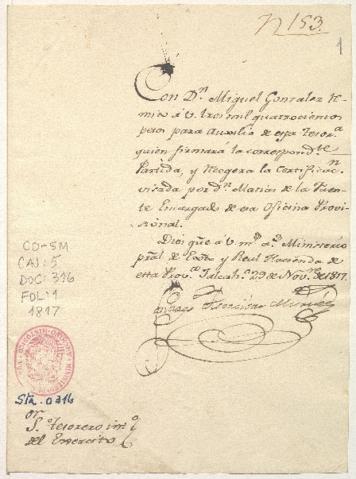 N 153.
1
Con Dn. Miguel Gonzalez re-
mito a V. tres mil quatrocientos
pesos para auxilio de esa Tesora.
quien firmará la correspondte.
Partida, y Recogera la Certificacn.
visada por Dn. Matias de la Fuente
Encargado de esa Oficina Provi-
sional.
Dios gue. á V. ms. as. Ministerio
pral. de Exto. y Real Hacienda de
esta Prova. Talcaho. 29 de Nove. de 1817.
CO-SM
CAJ: 5
DOC: 316
FOL: 1
1817
Sta. 0316
Or.
S. Tesorero into.
del Exercito